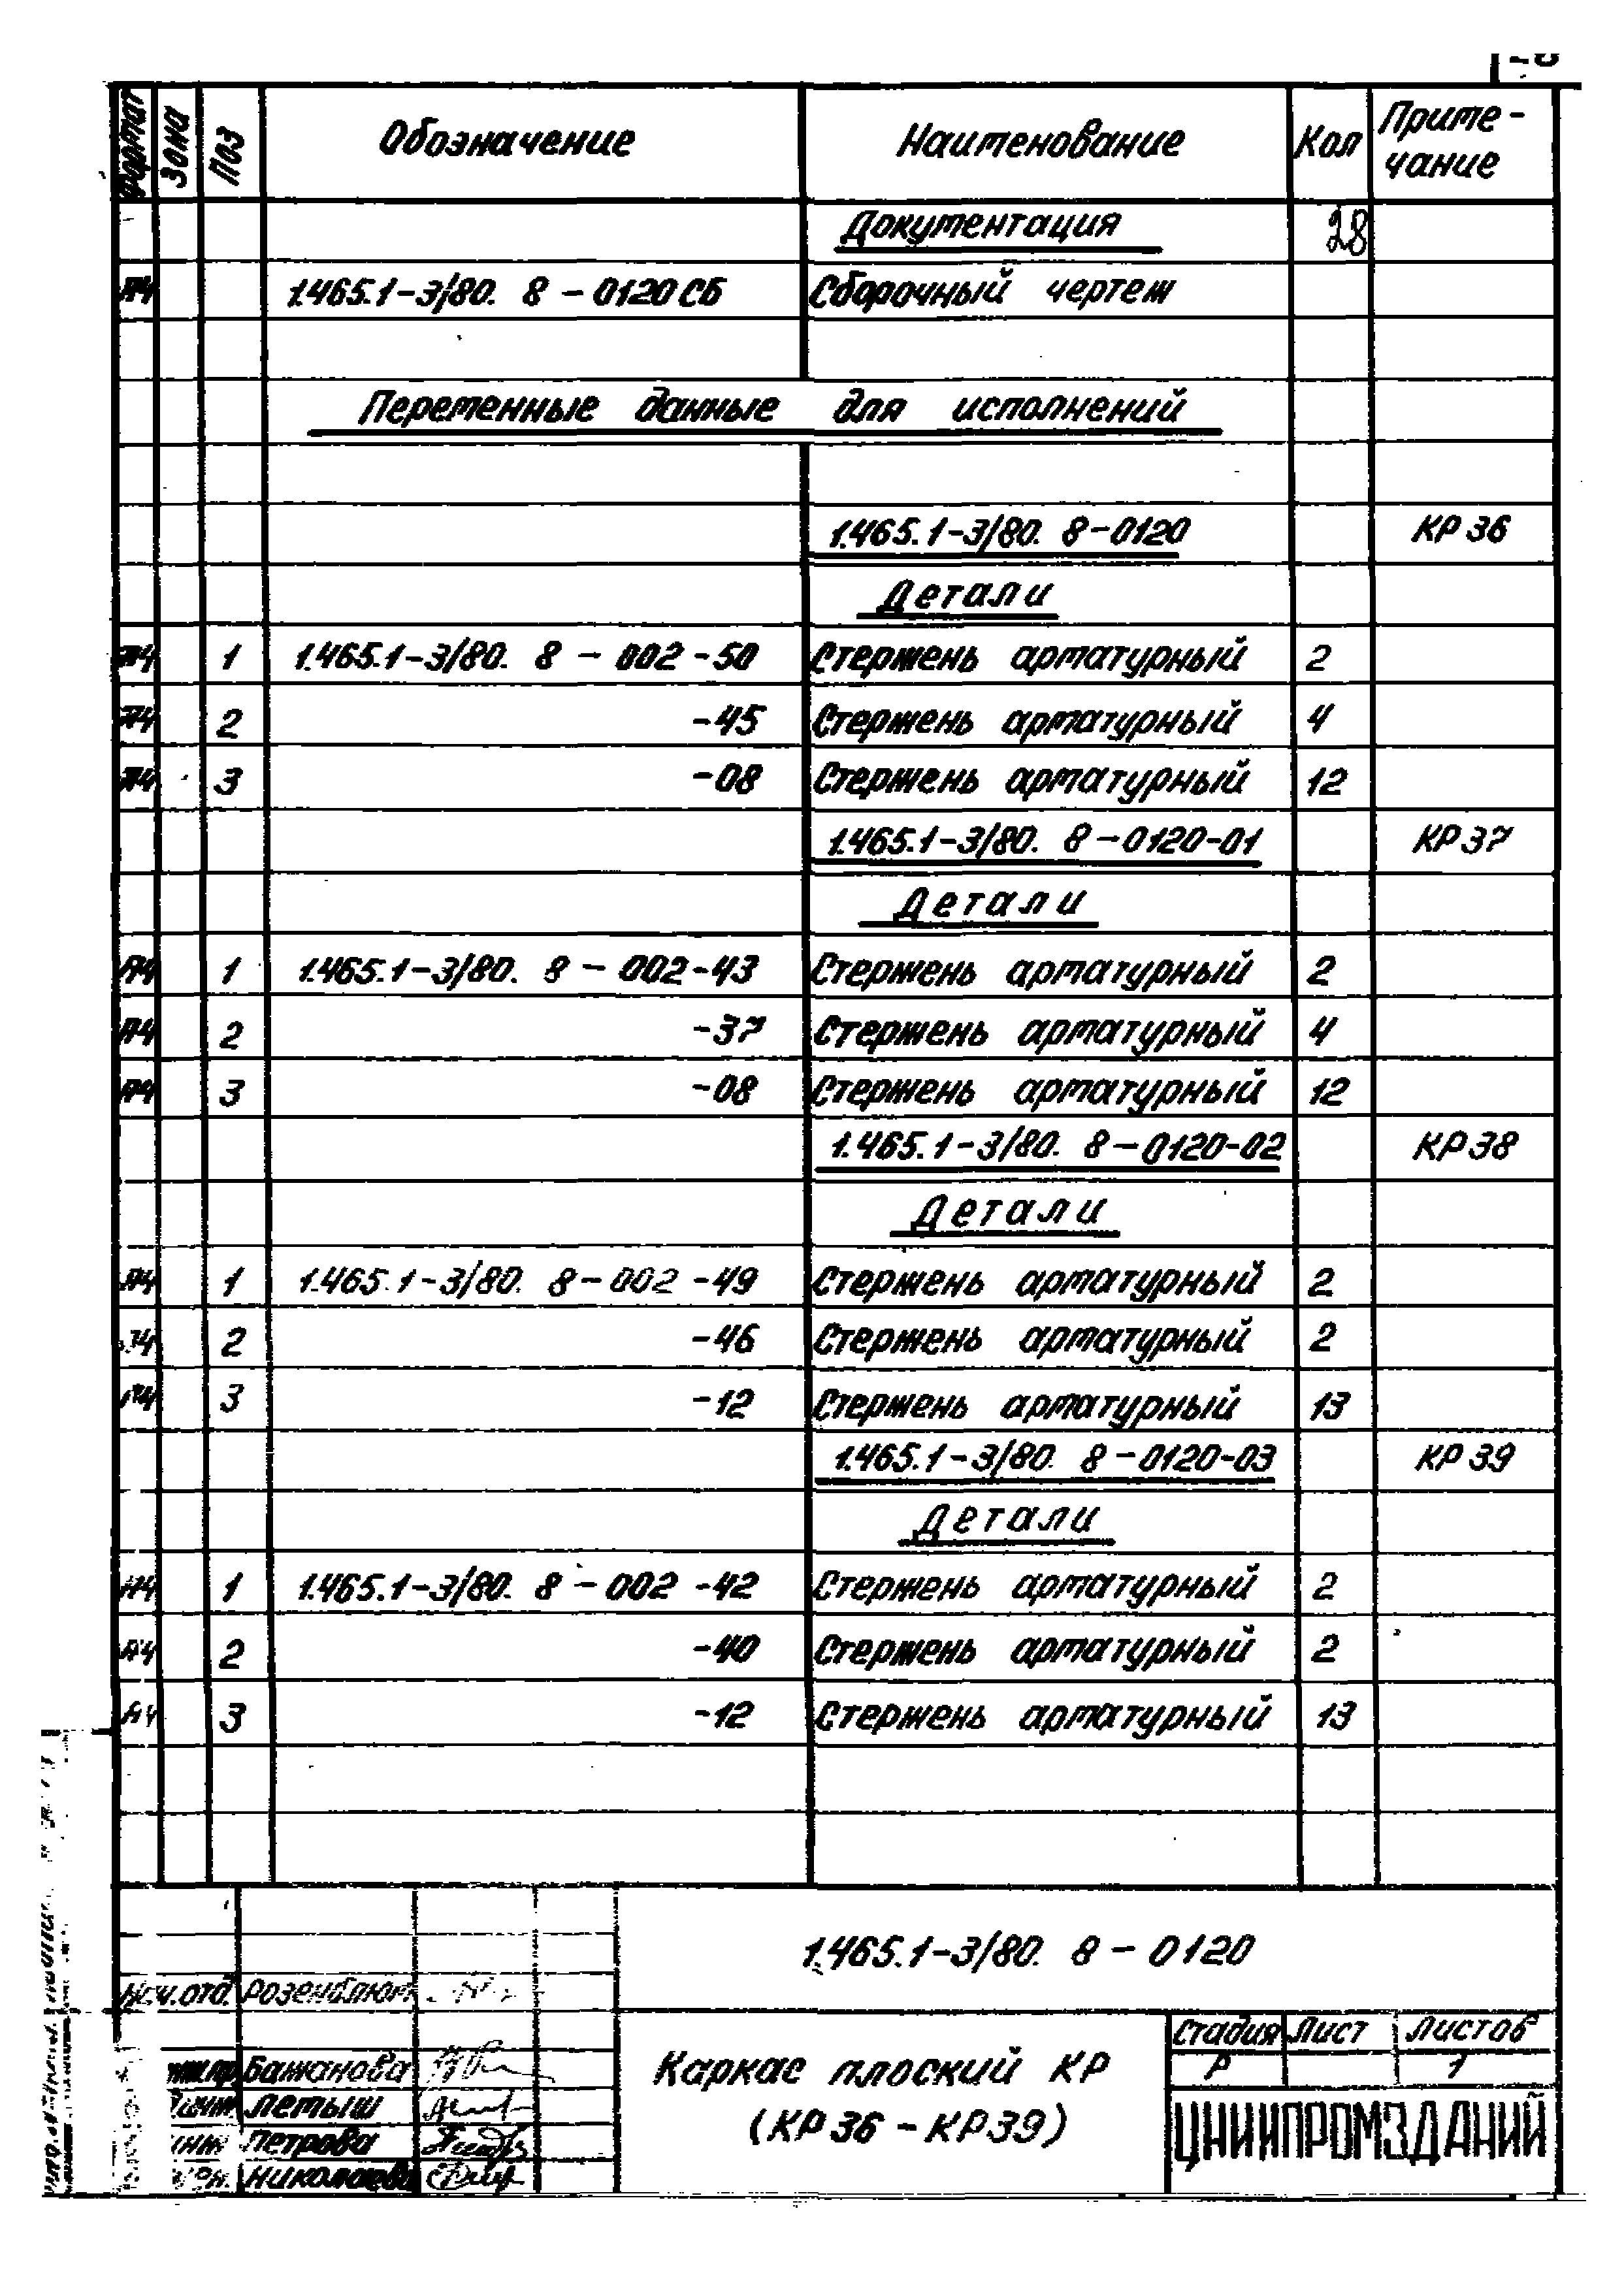 Формат Зона Поз Обозначение Наименование Кол Приме-
чание
Документация 28
А4 1.465.1-3/80. 8-0120СБ Сборочный чертеж
Переменные данные для исполнений
1.465.1-3/80. 8-0120 КР36
Детали
А4 1 1.465.1-3/80. 8-002-50 Стержень арматурный 2
А4 2 -45 Стержень арматурный 4
А4 3 -08 Стержень арматурный 12
1.465.1-3/80. 8-0120-01 КР37
Детали
А4 1 1.465.1-3/80. 8-002-43 Стержень арматурный 2
А4 2 -37 Стержень арматурный 4
А4 3 -08 Стержень арматурный 12
1.465.1-3/80. 8-0120-02 КР38
Детали
А4 1 1.465.1-3/80. 8-002-49 Стержень арматурный 2
А4 2 -46 Стержень арматурный 2
А4 3 -12 Стержень арматурный 13
1.465.1-3/80. 8-0120-03 КР39
Детали
А4 1 1.465.1-3/80. 8-002-42 Стержень арматурный 2
А4 2 -40 Стержень арматурный 2
А4 3 -12 Стержень арматурный 13
1.465.1-3/80. 8-0120
Нач.отд. Розенблюм
Бажанова
Летыш
Петрова
Николаева
Каркас плоский КР
(КР36-КР39)
Стадия Лист Листов
Р 1
ЦНИИПРОМЗДАНИЙ